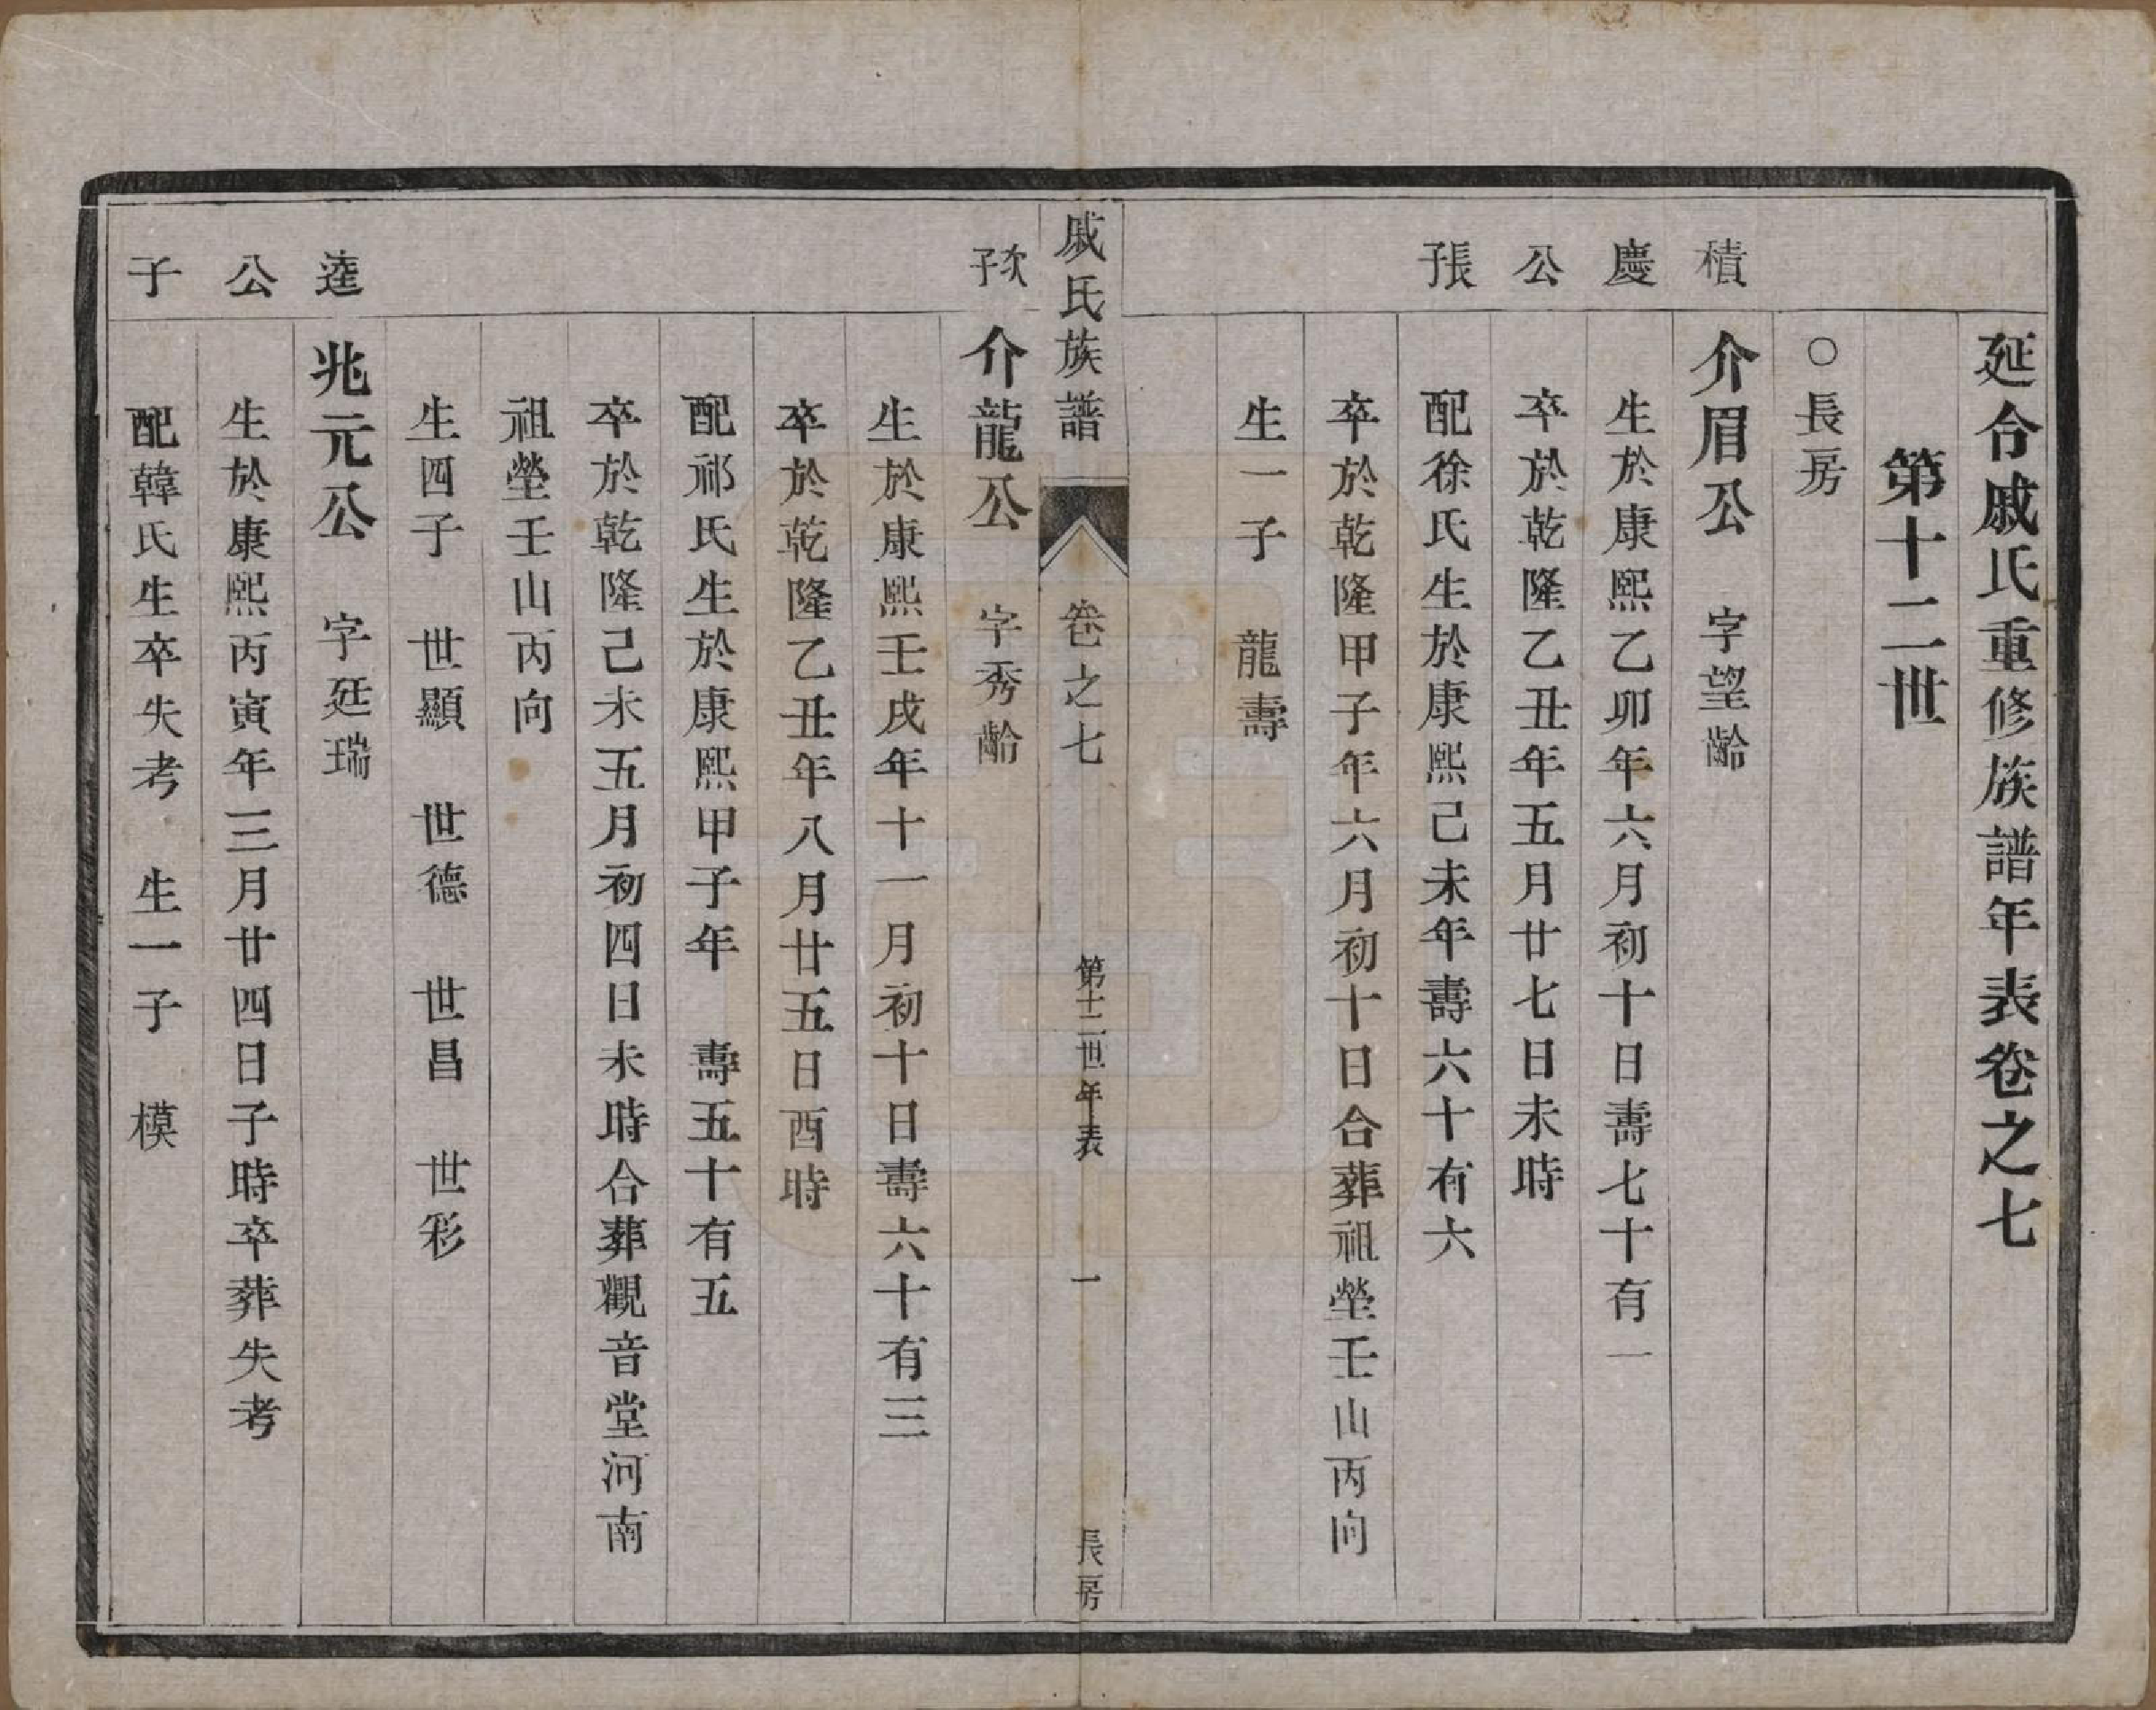 延令戚氏重修族譜年表卷之七
第十二世
○長房
積慶公長子
介眉公　字望齡
生於康熙乙卯年六月初十日壽七十有一
卒於乾隆乙丑年五月廿七日未時
配徐氏生於康熙己未年壽六十有六
卒於乾隆甲子年六月初十日合葬祖塋壬山丙向
生一子　龍壽
戚氏族譜　卷之七　第十二世年表　一　長房
次子
介龍公　字秀齡
生於康熙壬戌年十一月初十日壽六十有三
卒於乾隆乙丑年八月廿五日酉時
配祁氏生於康熙甲子年　壽五十有五
卒於乾隆己未五月初四日未時合葬觀音堂河南
祖塋壬山丙向
生四子　世顯　世德　世昌　世彩
逵公子
兆元公　字廷瑞
生於康熙丙寅年三月廿四日子時卒葬失考
配韓氏生卒失考　生一子　模